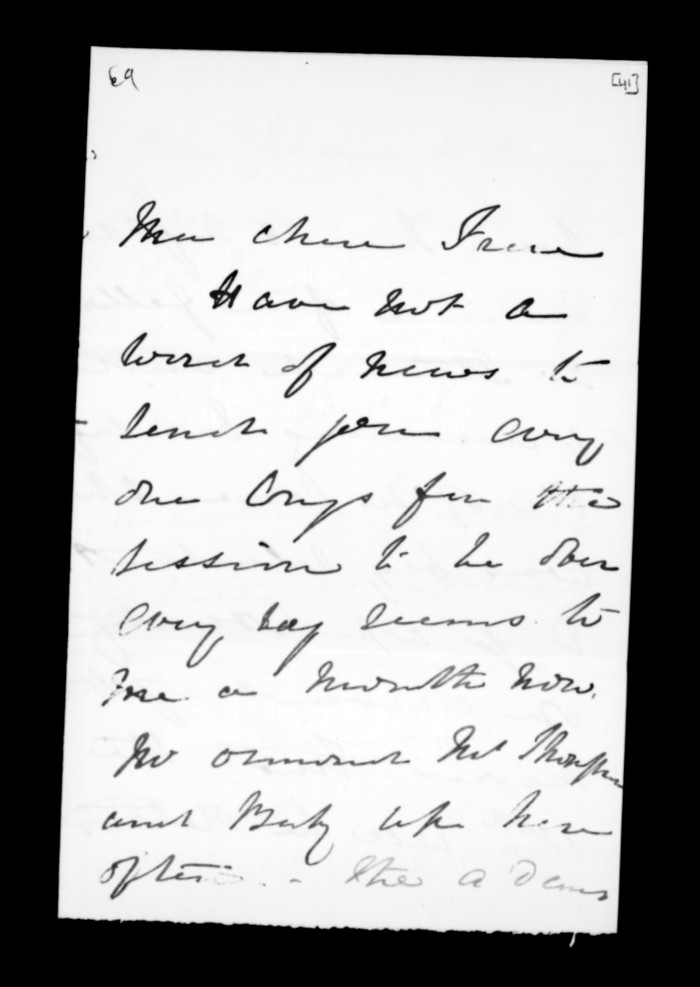 69 [41]
Ma chere Irene
Have not a
word of news to
send you every
one longs for the
session to be over
Every day seems to
me a month now.
Mr Ormond Mrs Thompson
and Baby are here
often. - The Adams